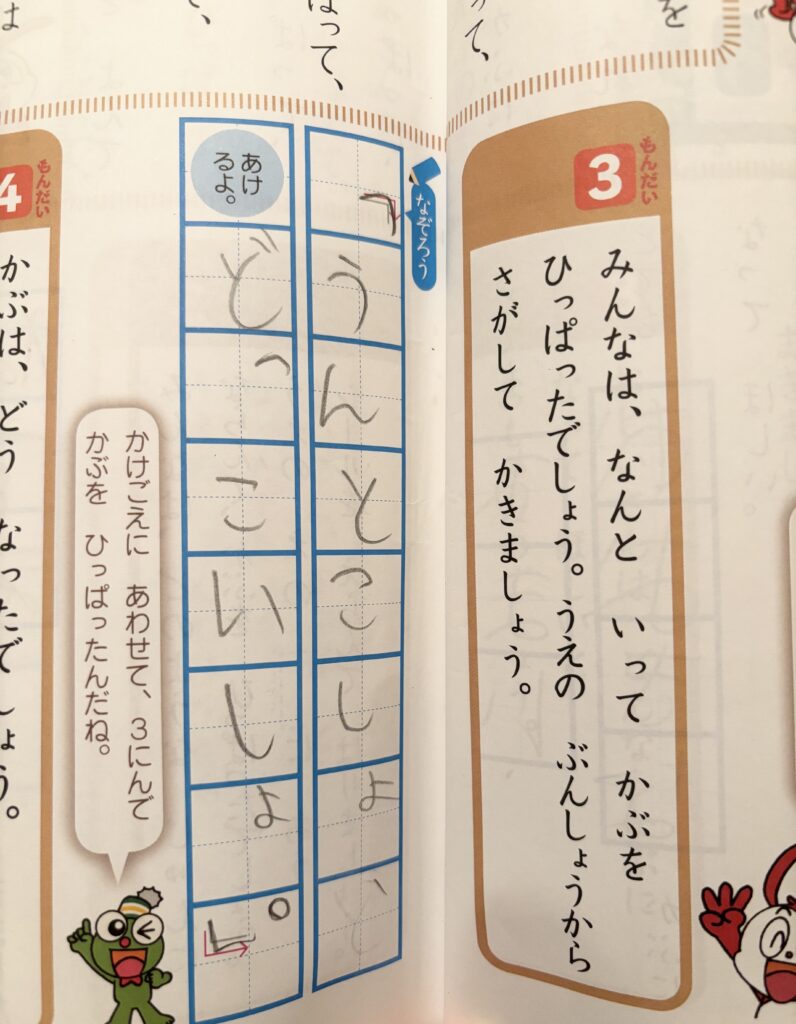 を
って、
って、
、
は
もんだい
3
みんなは、 なんと いって かぶを
ひっぱったでしょう。うえの ぶんしょうから
さがして かきましょう。
なぞろう
「うんとこしょ、
あけ
るよ。
どっこいしょ。」
かけごえに あわせて、3にんで
かぶを ひっぱったんだね。
もんだい
4
かぶは、 どう なったでしょう。